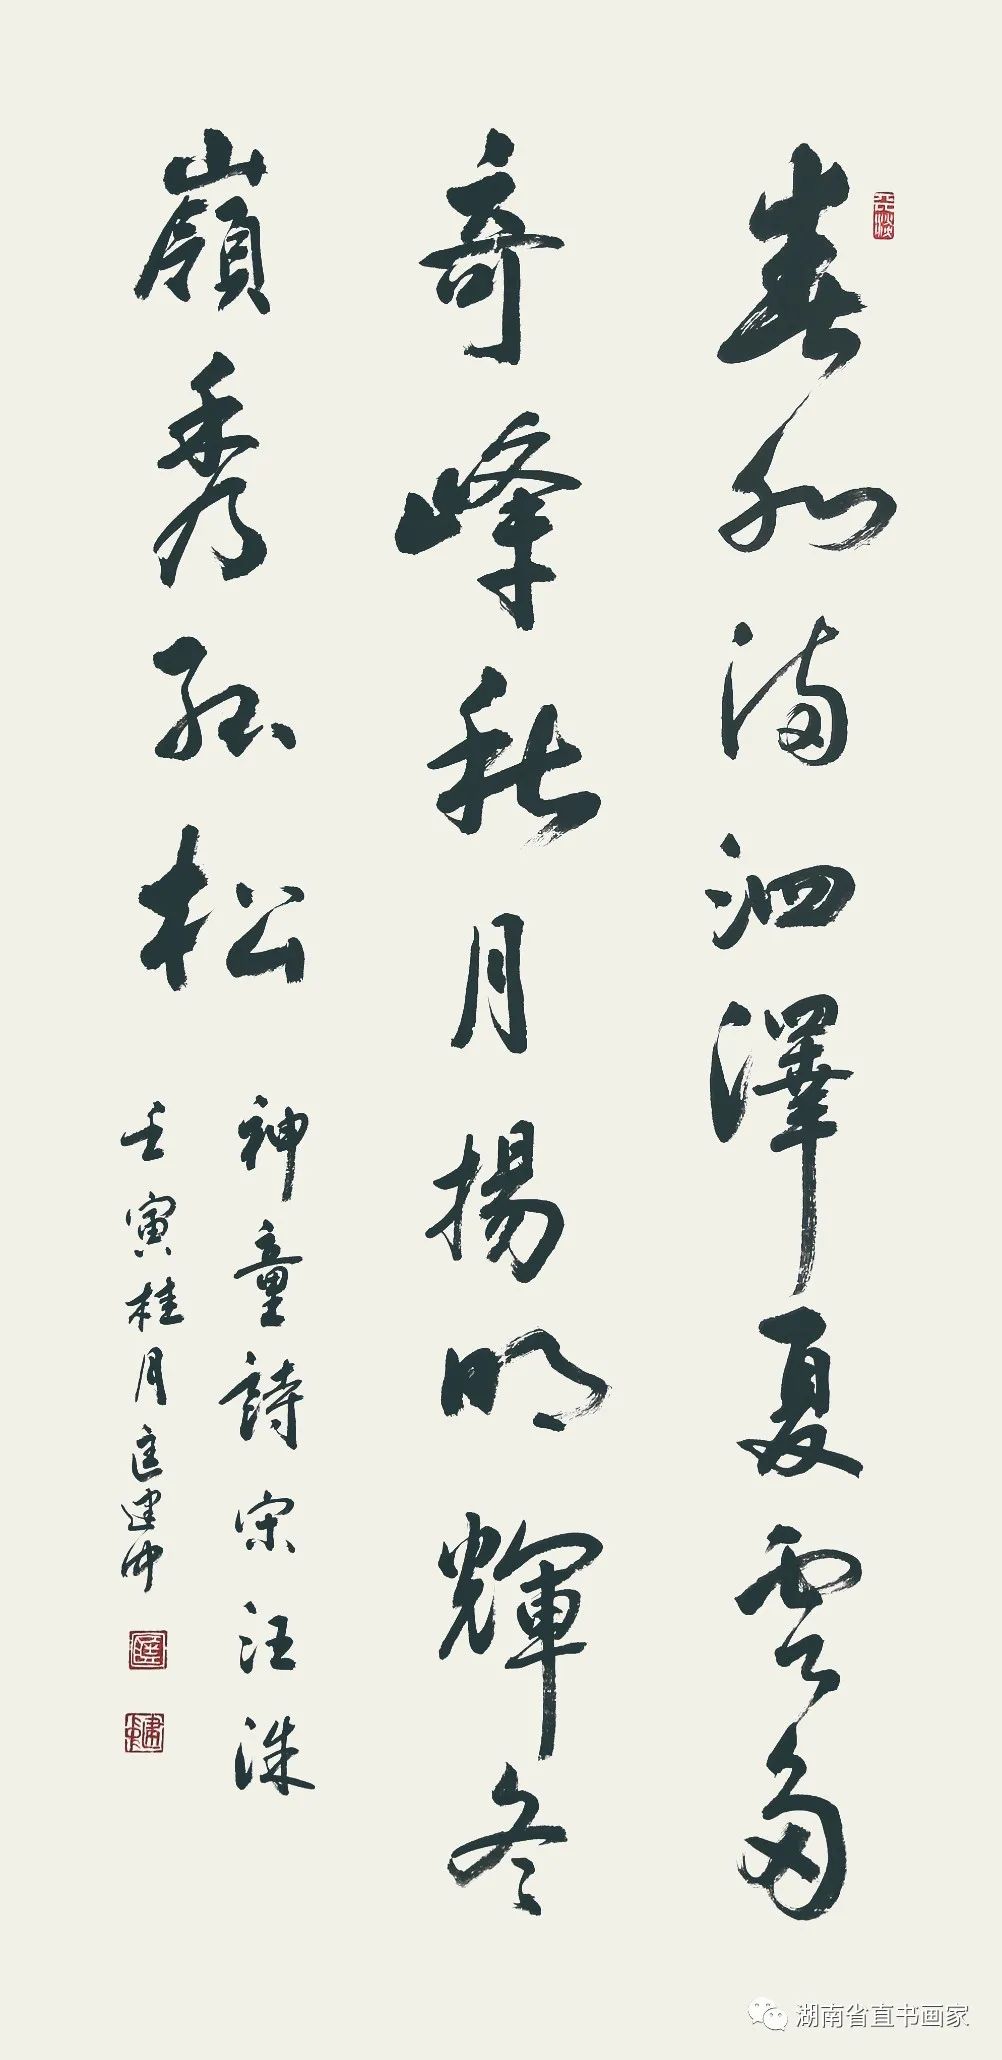 春水滿泗澤夏雲多
奇峰秋月揚明輝冬
嶺秀孤松
神童詩宋汪洙
壬寅桂月匡建
湖南省直书画家